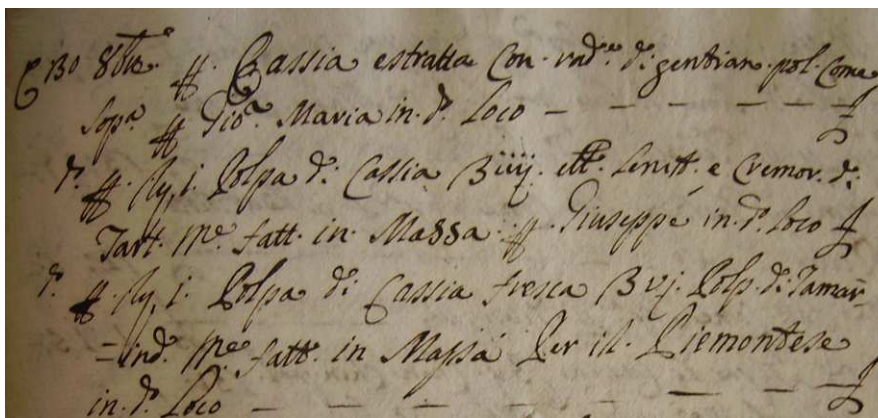 E 130 8bre. ff. Cassia estratta Con. rad.e di gentian. pol. Come
Sop.a ff Gio.a Maria in. d.o Loco — — — — — —
d.o ff. Rx, i. Polpa di Cassia ʒiiij. ett. lenit. e Cremor. di
Tart. Me. fatt. in. Massa. ff. Giuseppe in. d.o Loco
d.o ff. Rx, i. Polpa di Cassia fresca ʒvj. Polp. di Tamar=
=ind. Me. fatt. in Massa Per il. Piemontese
in. d.o Loco — — — — — —